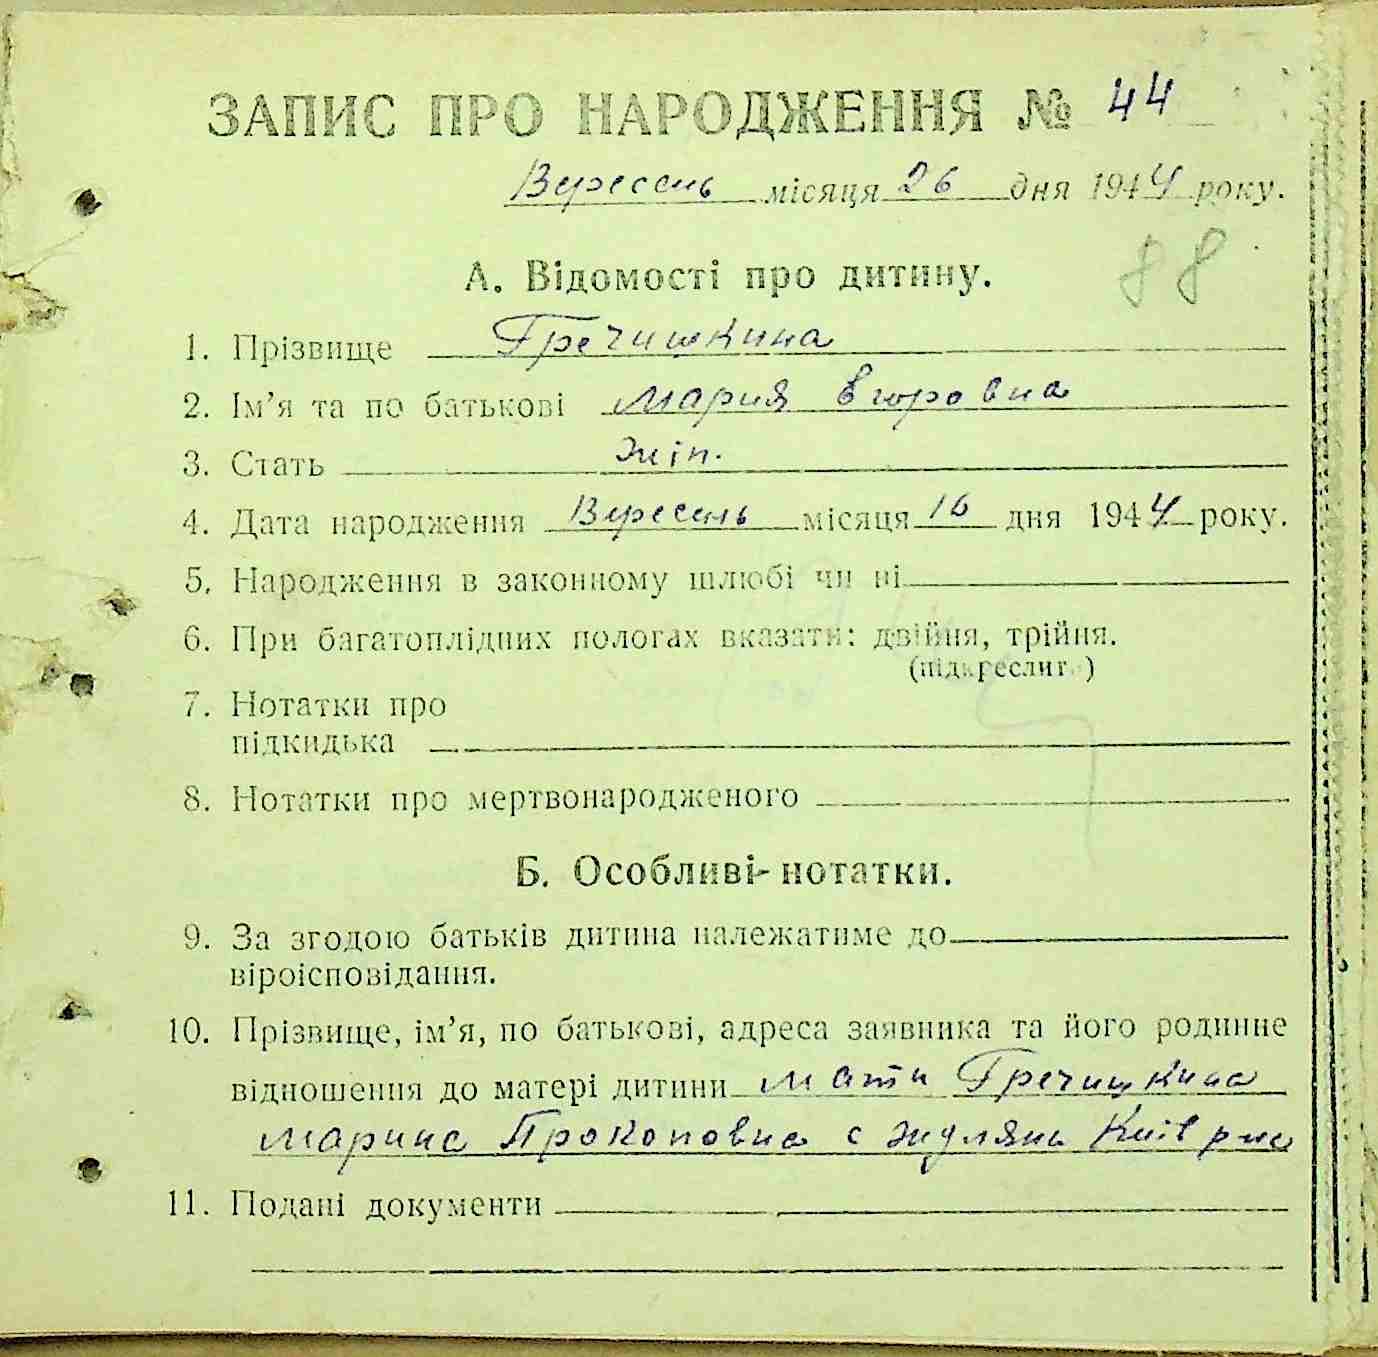 ЗАПИС ПРО НАРОДЖЕННЯ № 44
Вересень місяця 26 дня 1944 року.
88
А. Відомості про дитину.
1. Прізвище Гречишкина
2. Ім'я та по батькові Мария Егоровна
3. Стать жін.
4. Дата народження Вересень місяця 16 дня 1944 року.
5. Народження в законному шлюбі чи ні
6. При багатоплідних пологах вказати: двійня, трійня.
(підкреслити)
7. Нотатки про
підкидька
8. Нотатки про мертвонародженого
Б. Особливі нотатки.
9. За згодою батьків дитина належатиме до
віроісповідання.
10. Прізвище, ім'я, по батькові, адреса заявника та його родинне
відношення до матері дитини Мати Гречишкина
Марина Прокоповна с Жуляни Київ рна
11. Подані документи